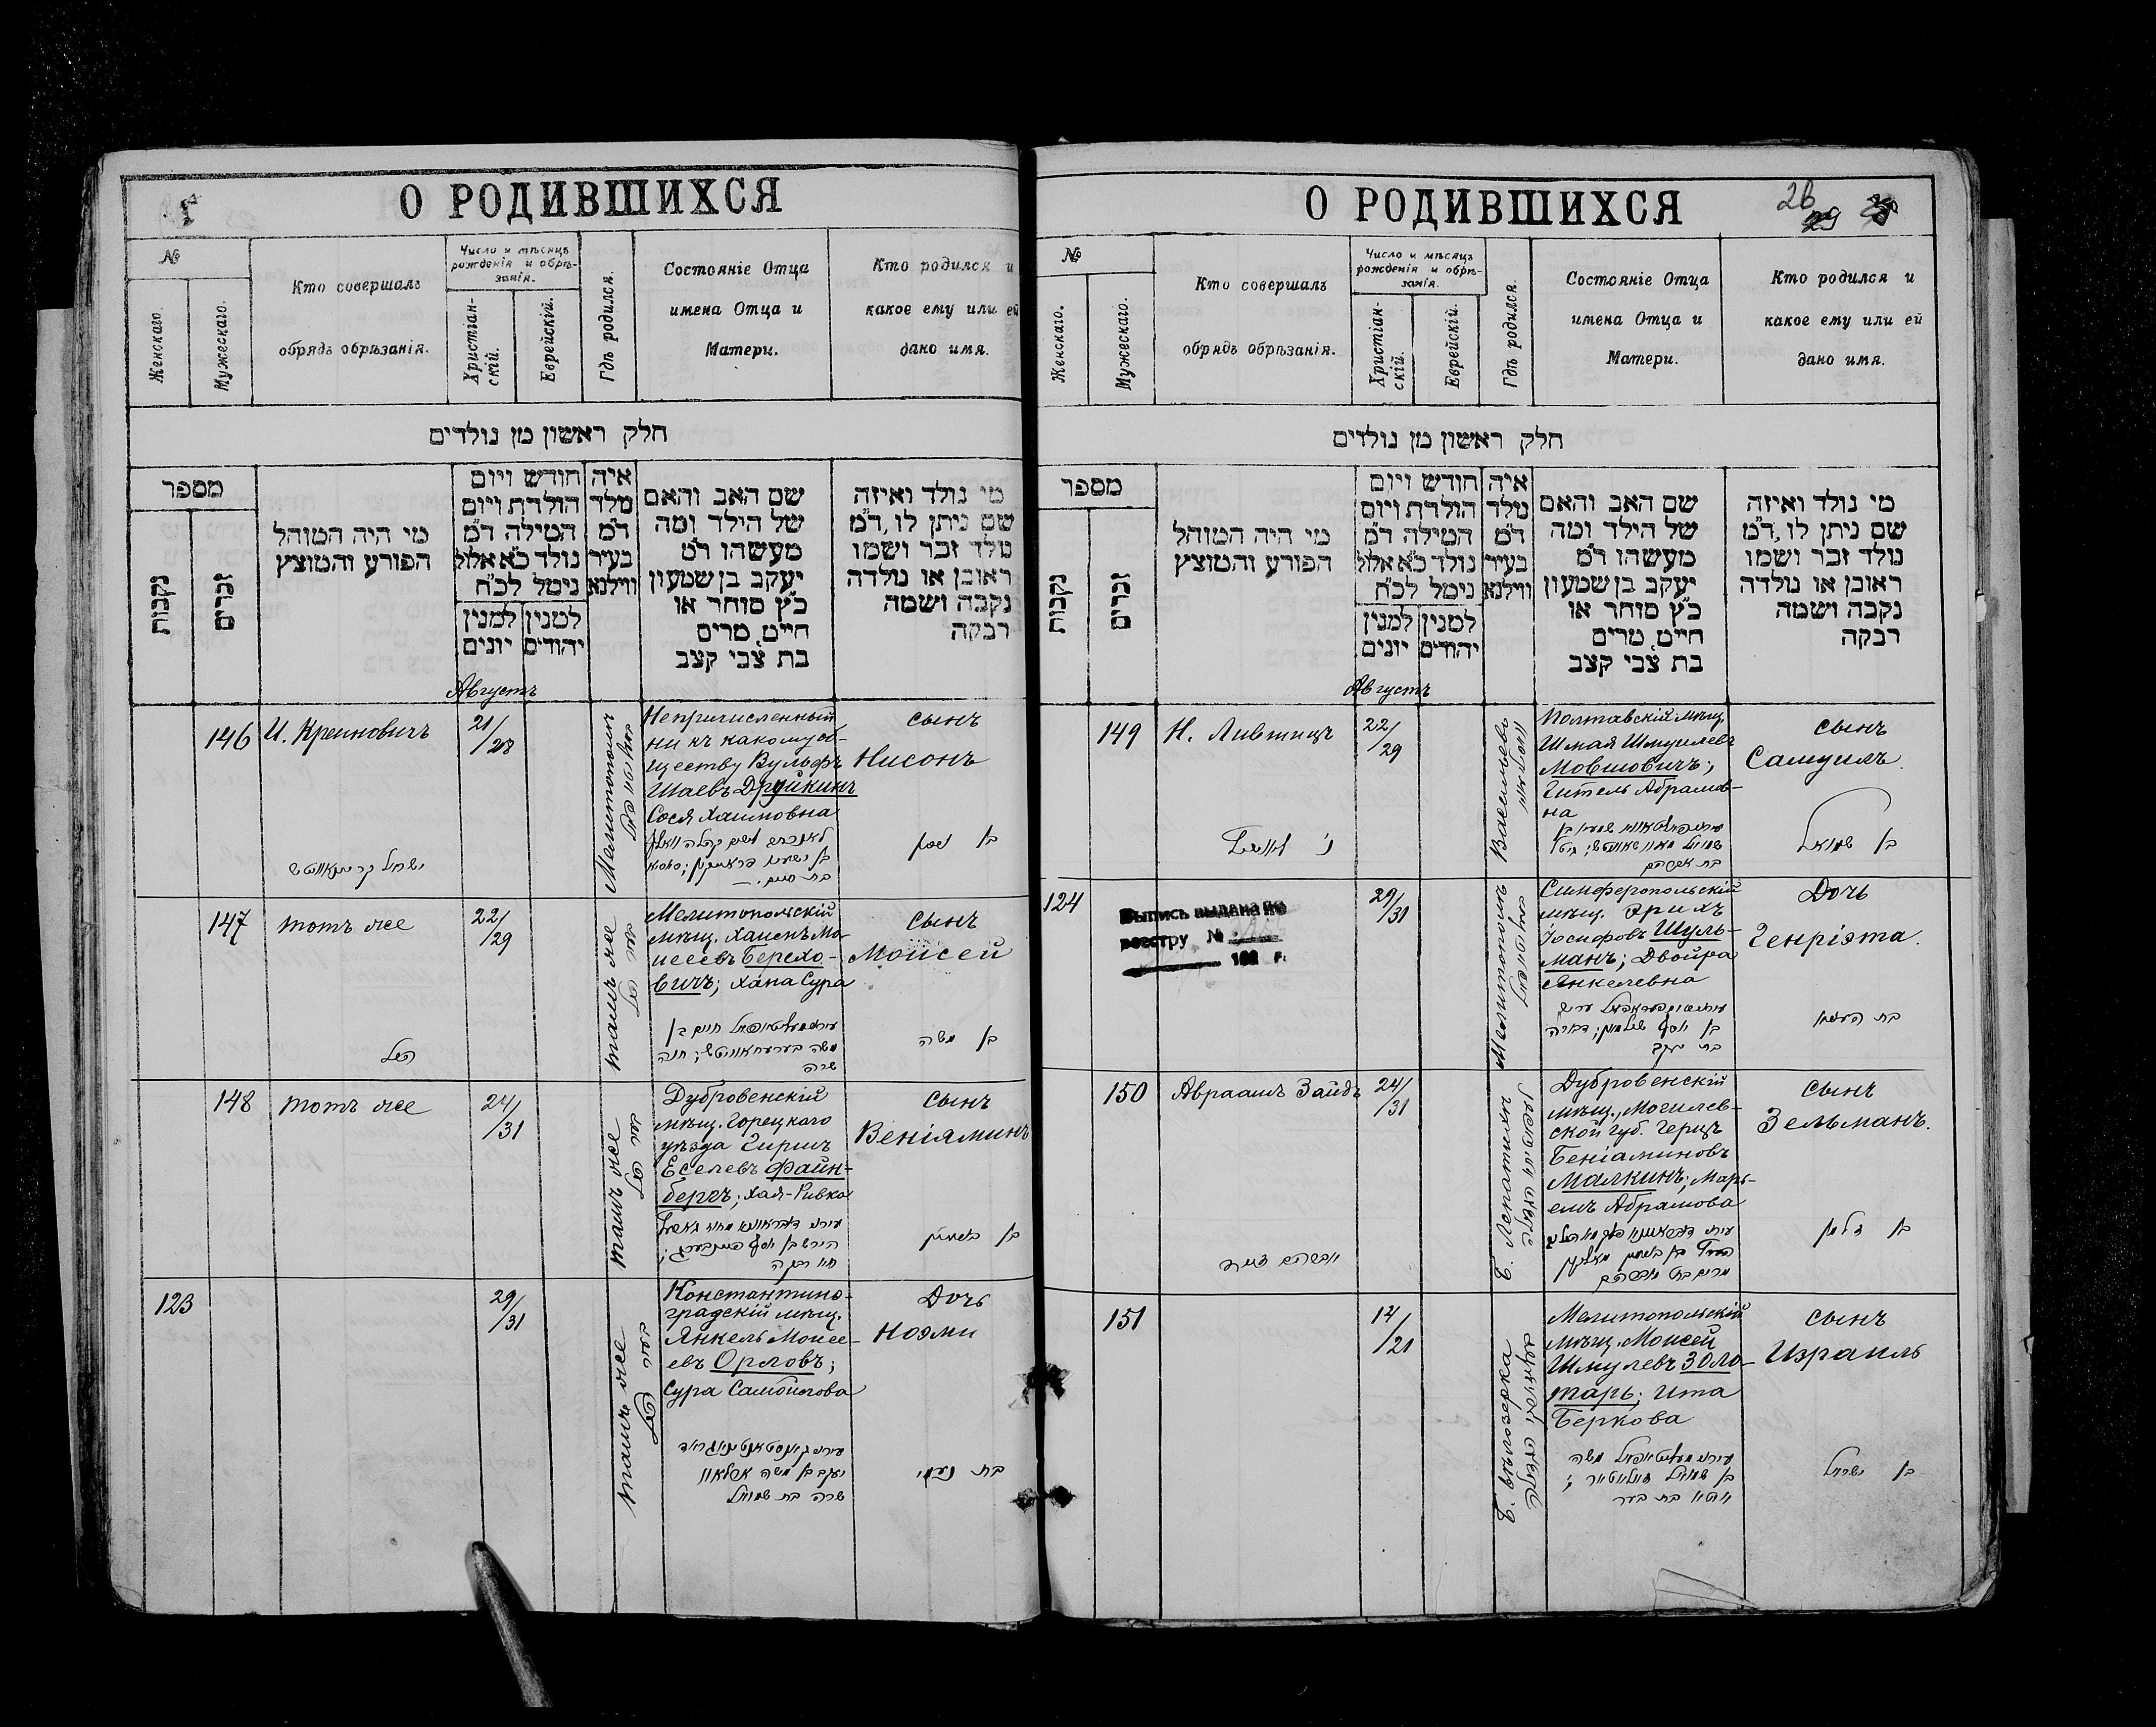 О РОДИВШИХСЯ
№
Женскаго.
Мужескаго.
Кто совершалъ
обрядъ обрѣзанія.
Число и мѣсяцъ
рожденія и обрѣ-
занія.
Христіан-
скій.
Еврейскій.
Гдѣ родился.
Состояніе Отца
имена Отца и
Матери.
Кто родился и
какое ему или ей
дано имя.
חלק ראשון מן נולדים
מספר
נקבות
זכרים
מי היה המוהל
הפורע והמוצץ
חודש ויום
הולדת ויום
המילה ד"מ
נולד כ"א אלול
נימל לכ"ח
למנין
יונים
למנין
יהודים
איה
מלד
ד"מ
בעיר
ווילנא
שם האב והאם
של הילד ומה
מעשהו ד"מ
יעקב בן שמעון
כ"ץ סוחר או
חייט, מרים
בת צבי קצב
מי נולד ואיזה
שם ניתן לו, ד"מ
נולד זכר ושמו
ראובן או נולדה
נקבה ושמה
רבקה
Августъ
146
И. Креиновичъ
21/28
Мелитополь
Непричисленный
ни къ какому об-
ществу Вульфъ
Шаевъ Друйкинъ
Сося Хаимовна
сынъ
Нисонъ
בן ניסן
147
тотъ же
22/29
тамъ же
Мелитопольскій
мѣщ. Хаимъ Мо-
исеевъ Берехо-
вичъ; Хана Сура
משה בערעחאוויטש; חנה
שרה
сынъ
Моисей
בן משה
הנ"ל
148
тотъ же
24/31
тамъ же
Дубровенскій
мѣщ. Горецкаго
уѣзда Гиршъ
Еселевъ Файн-
бергъ; Хая-Ривка
חיה רבקה
сынъ
Веніяминъ
בן בנימין
123
29/31
тамъ же
Константино-
градскій мѣщ.
Янкель Моисе-
евъ Орловъ;
Сура Самойлова
יעקב בן משה ארלאוו
שרה בת שמואל
Дочь
Ноэми
בת נעמי
О РОДИВШИХСЯ
26
29
№
Женскаго.
Мужескаго.
Кто совершалъ
обрядъ обрѣзанія.
Число и мѣсяцъ
рожденія и обрѣ-
занія.
Христіан-
скій.
Еврейскій.
Гдѣ родился.
Состояніе Отца
имена Отца и
Матери.
Кто родился и
какое ему или ей
дано имя.
חלק ראשון מן נולדים
מספר
נקבות
זכרים
מי היה המוהל
הפורע והמוצץ
חודש ויום
הולדת ויום
המילה ד"מ
נולד כ"א אלול
נימל לכ"ח
למנין
יונים
למנין
יהודים
איה
נולד
ד"מ
בעיר
ווילנא
שם האב והאם
של הילד ומה
מעשהו ד"מ
יעקב בן שמעון
כ"ץ סוחר או
חייט, מרים
בת צבי קצב
מי נולד ואיזה
שם ניתן לו, ד"מ
נולד זכר ושמו
ראובן או נולדה
נקבה ושמה
רבקה
Августъ
149
Н. Лившицъ
22/29
Васильевъ
Полтавскій мѣщ.
Шмая Шмуилевъ
Мовшовичъ;
Гитель Абрамов-
на
בת אברהם
сынъ
Самуилъ.
בן שמואל
124
Выпись выдана по
реестру №
192 г.
29/31
Мелитополь
Симферопольскій
мѣщ. Эрихъ
Іосифовъ Шуль-
манъ; Двойра
Янкелевна
בן יוסף שולמאן; דבורה
בת יעקב
Дочь
Генріэта.
150
Авраамъ Зайдъ
24/31
Б. Лепатиха
Дубровенскій
мѣщ., Могилев-
ской губ. Герцъ
Беніаминовъ
Малкинъ; Марь-
емъ Абрамова
מרים בת אברהם
сынъ
Зельманъ.
בן זלמן
151
14/21
Б. Бѣлозерка
Мелитопольскій
мѣщ. Моисей
Шмулевъ Золо-
тарь; Ита
Беркова
сынъ
Израиль
בן ישראל